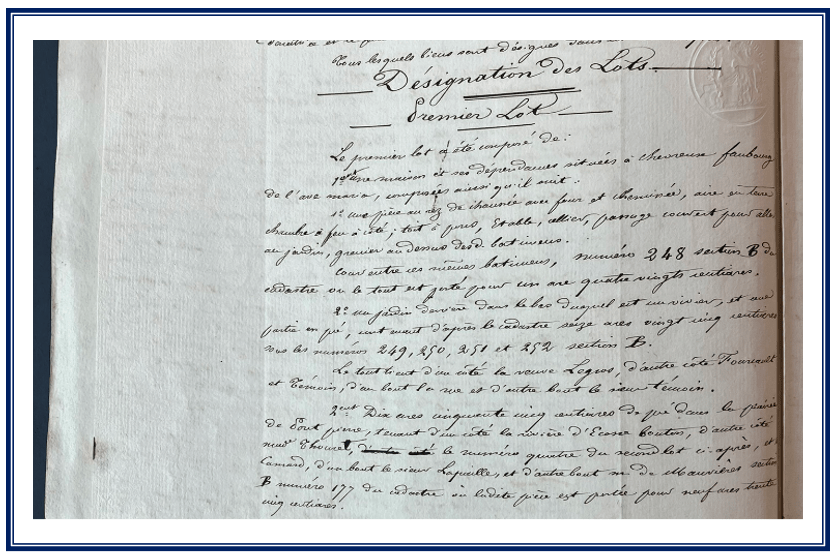 Tous lesquels biens sont désignés dans
Désignation des Lots.
Premier Lot
Le premier lot a été composé de :
1ent une maison et ses dépendances situées à Chevreuse faubourg
de l'ave maria, composées ainsi qu'il suit :
1° une pièce au rez de chaussée avec four et cheminée, aire en terre
chambre à feu à côté ; toit à porcs, Etable, cellier, passage couvert pour aller
au jardin, grenier au dessus desd. batimens.
cour entre ces mêmes batimens, numéro 248 section B du
cadastre où le tout est porté pour un are quatre vingts centiares.
2° un jardin derrière dans le bas duquel est un vivier, et une
partie en pré, contenant d'après le cadastre seize ares vingt cinq centiares
sous les numéros 249, 250, 251 et 252 section B.
Le tout tient d'un côté la veuve Legros, d'autre côté
et Témoin, d'un bout la rue et d'autre bout le sieur témoin.
2ent Dix ares cinquante cinq centiares de pré dans la prairie
de Pont pierre, tenant d'un côté la rivière d'Ecosse bouton, d'autre côté
Thouvet, le numéro quatre du second lot ci-après, et
d'un bout le sieur Lapuille, et d'autre bout mr de Mauvières section
B numéro 177 du cadastre où ladite pièce est portée pour neuf ares trente
cinq centiares.